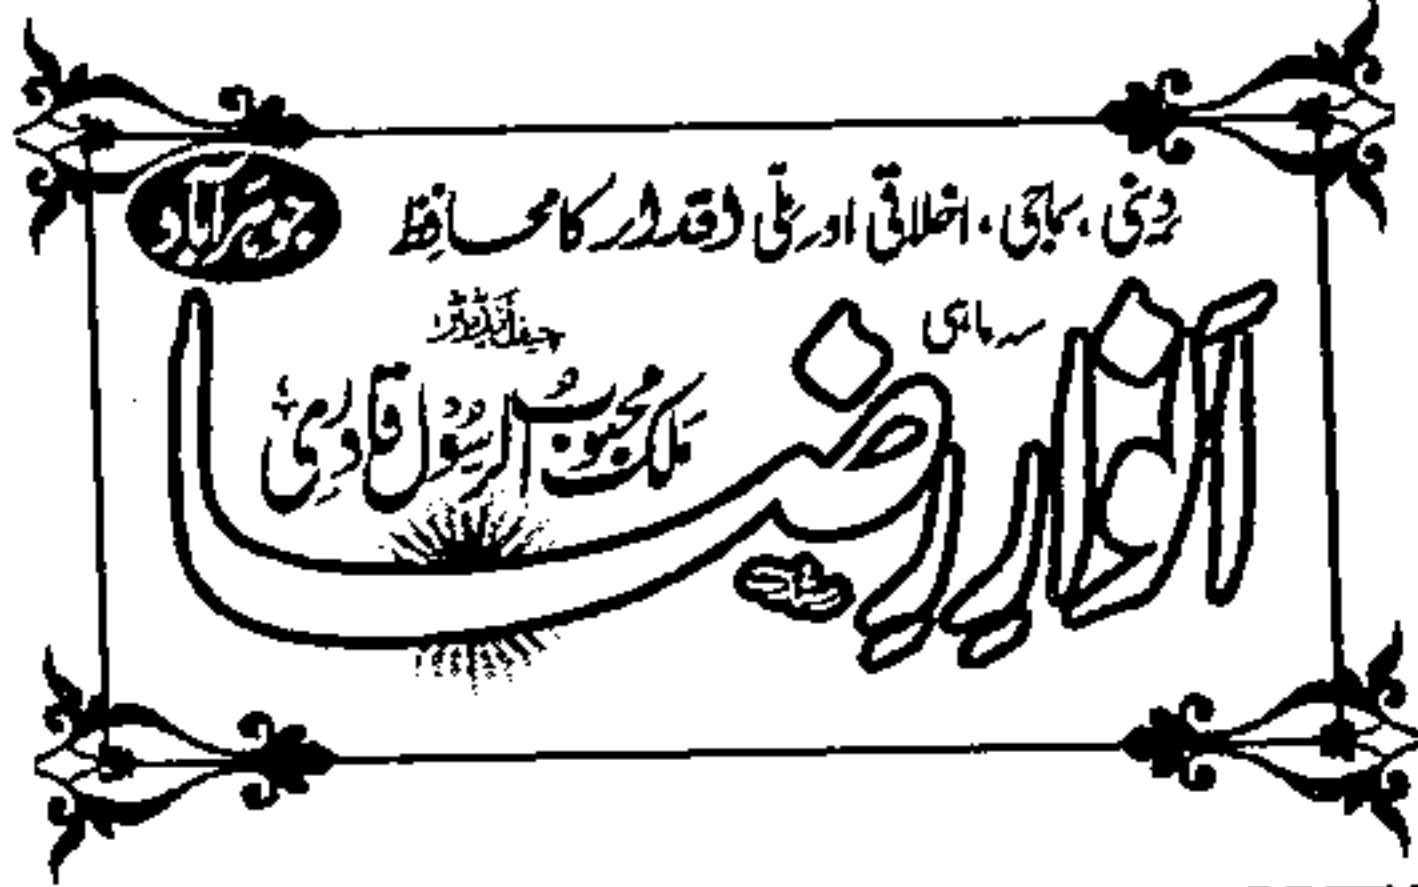 دینی، سماجی، اخلاقی اور ملی اقدار کا محافظ
جوہرآباد
سہ ماہی
انوار رضا
چیف ایڈیٹر
ملک محبوب الرسول قادری